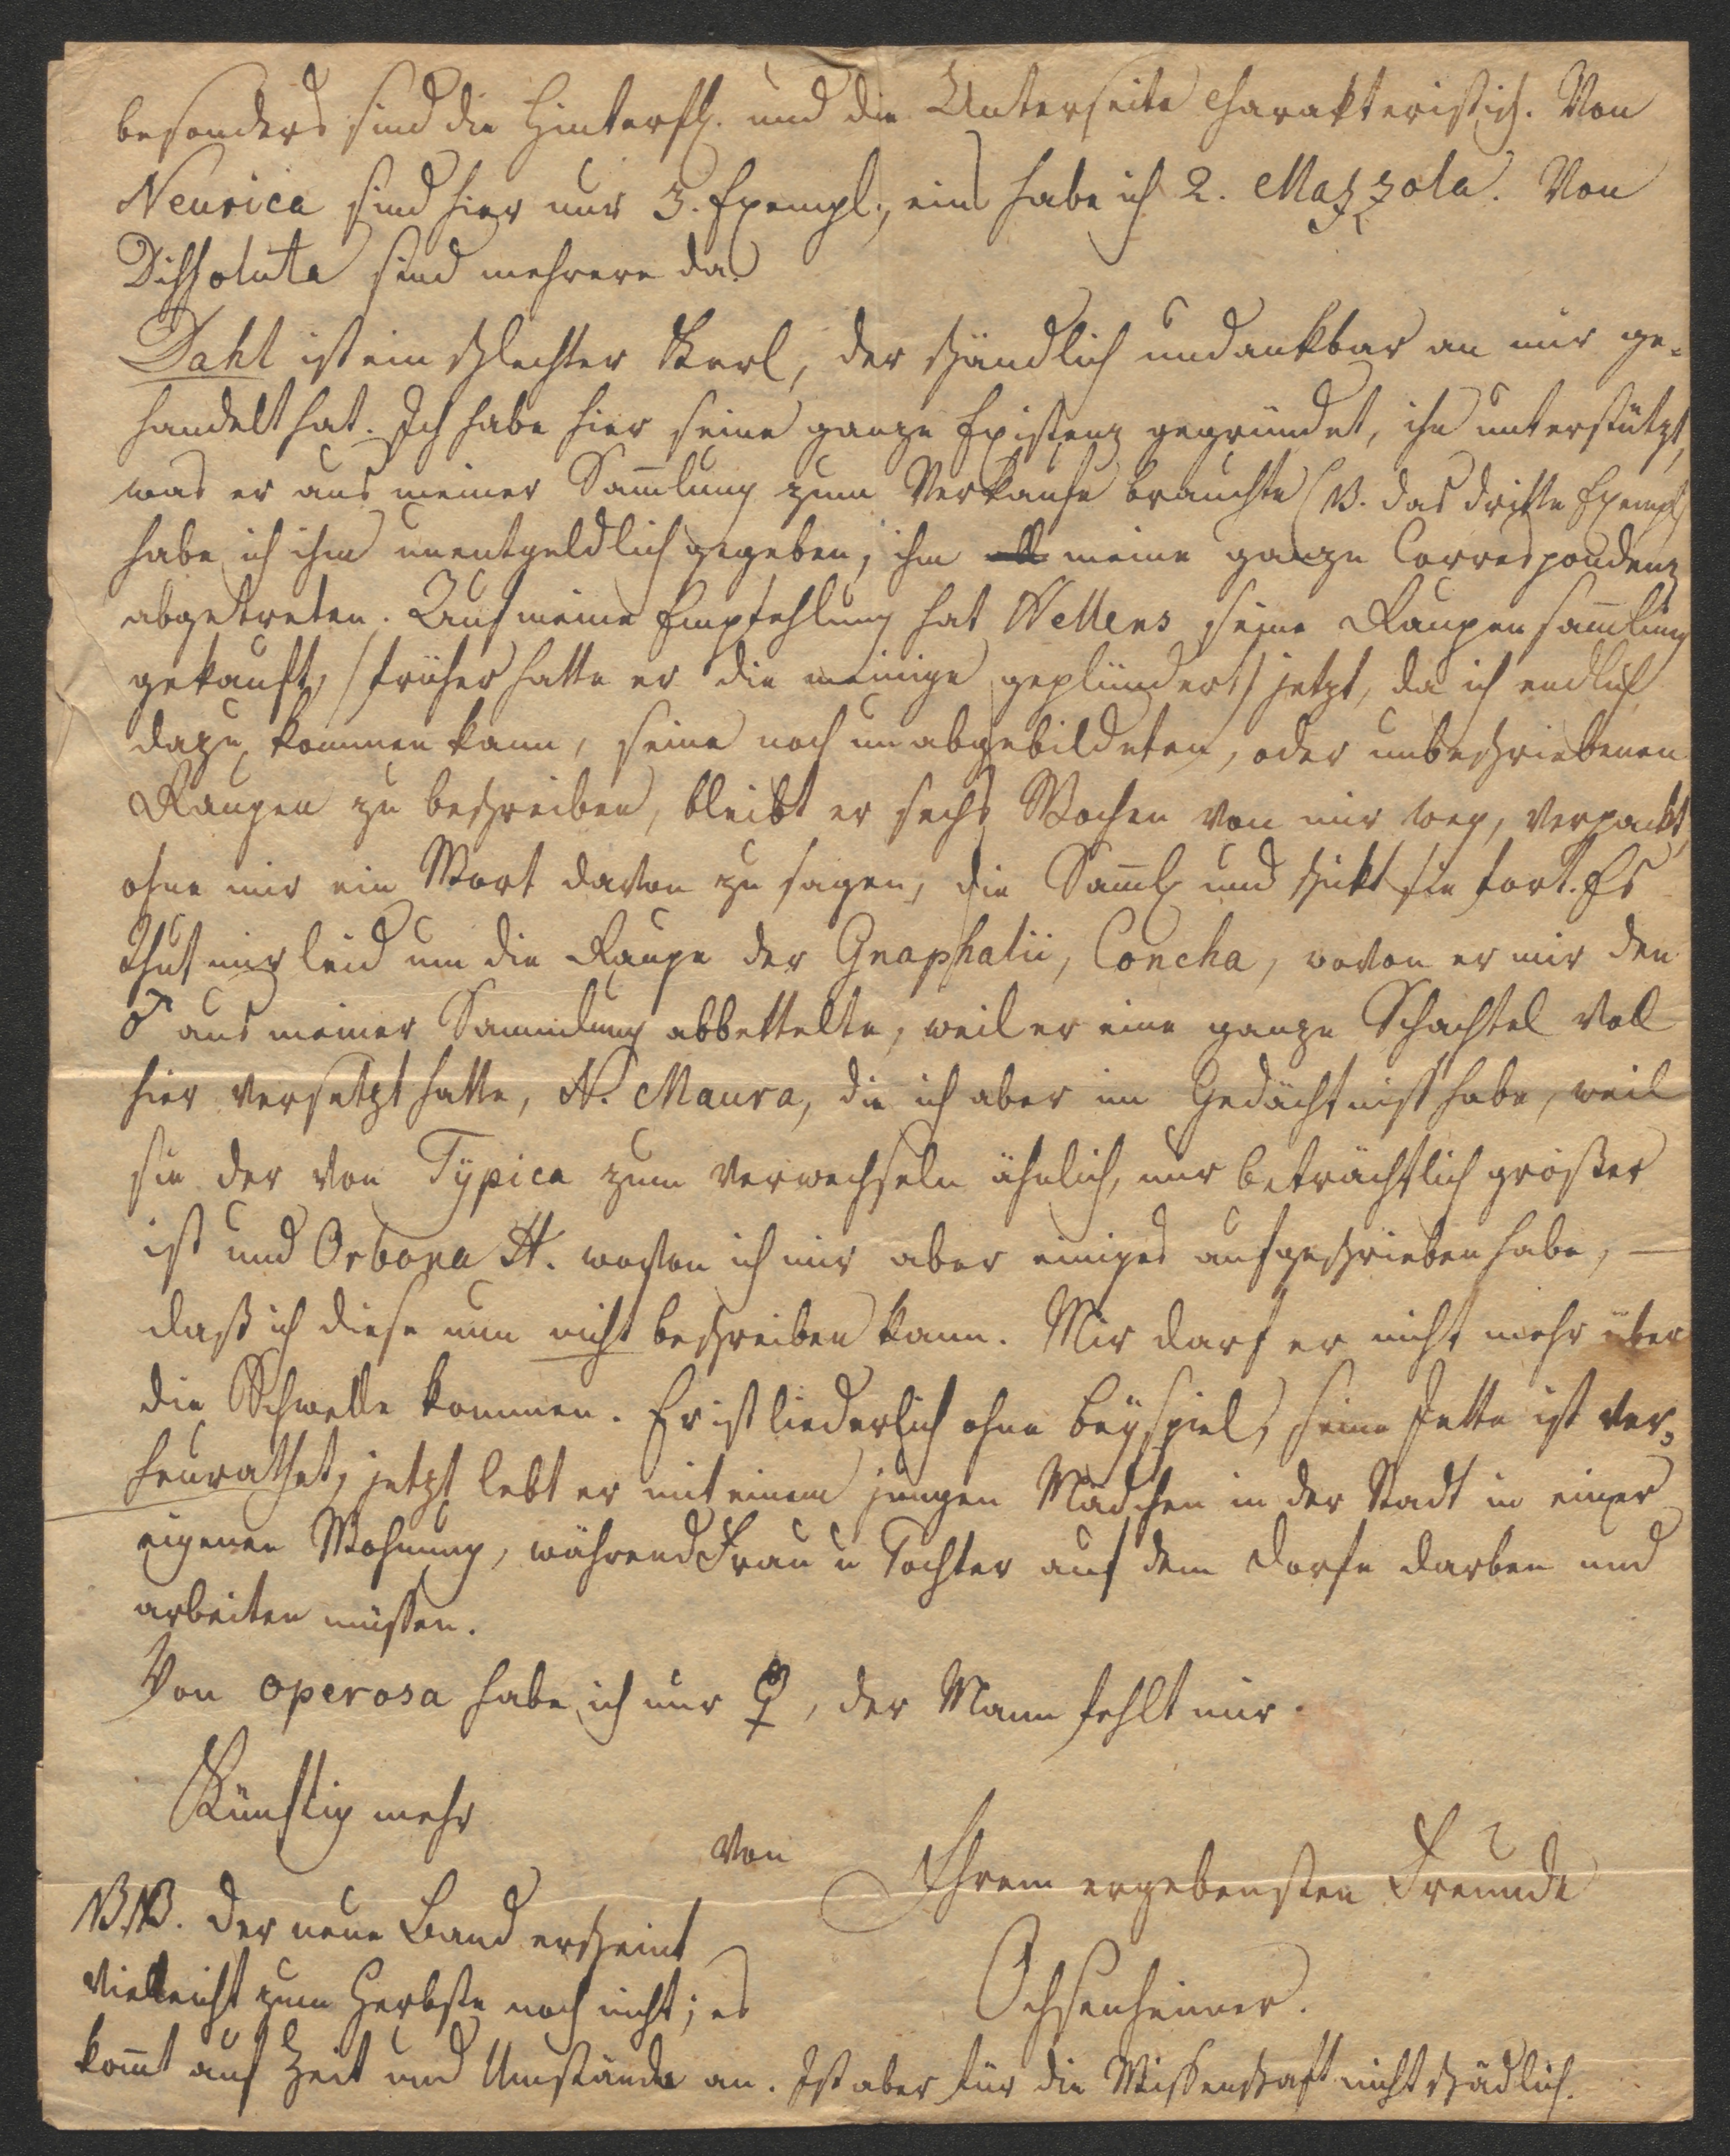 besonders sind die Hinterfl. und die Unterseite charakteristisch. Von
Neurica sind hier nur 3. Exempl., eins habe ich 2. Mazzola. Von
Dissoluta sind mehrere da.
Dahl ist ein schlechter Kerl, der schändlich undankbar an mir ge-
handelt hat. Ich habe hier seine ganze Existenz gegründet, ihn unterstützt,
was er aus meiner Sam̄lung zum Verkaufe brauchte (NB. das dritte Exempl)
habe ich ihm unentgeldlich gegeben, ihm meine ganze Correspondenz
abgetreten. Auf meine Empfehlung hat seine Raupensam̄lung
gekauft, (früher hatte er die meinige geplündert) jetzt, da ich endlich
dazu kommen kann, seine noch unabgebildeten, oder unbeschriebenen
Raupen zu beschreiben, bleibt er sechs Wochen von mir weg, verpackt,
ohne mir ein Wort davon zu sagen, die Sam̄l. und schikt sie fort. Es
thut mir leid um die Raupe der Gnaphalii, Concha, wovon er mir den
♂ aus meiner Sammlung abbettelte, weil er eine ganze Schachtel voll
hier versetzt hatte, N. Maura, die ich aber im Gedächtniss habe, weil
sie der von Typica zum verwechseln ähnlich, nur beträchtlich größer
ist und Orbona H. wovon ich mir aber einiges aufgeschrieben habe, —
daß ich diese nun nicht beschreiben kann. Mir darf er nicht mehr über
die Schwelle kommen. Er ist liederlich ohne Beyspiel, seine Jette ist ver-
heurathet, jetzt lebt er mit einem jungen Mädchen in der Stadt in einer
eigenen Wohnung, während Frau u Tochter auf dem Dorfe darben und
arbeiten müssen.
Von operosa habe ich nur ♀, der Mann fehlt mir.
Künftig mehr
von
Ihrem ergebensten Freunde
Ochsenheimer.
NB. Der neue Band erscheint
vielleicht zum Herbste noch nicht; es
kom̄t auf Zeit und Umstände an. Ist aber für die Wissenschaft nicht schädlich.